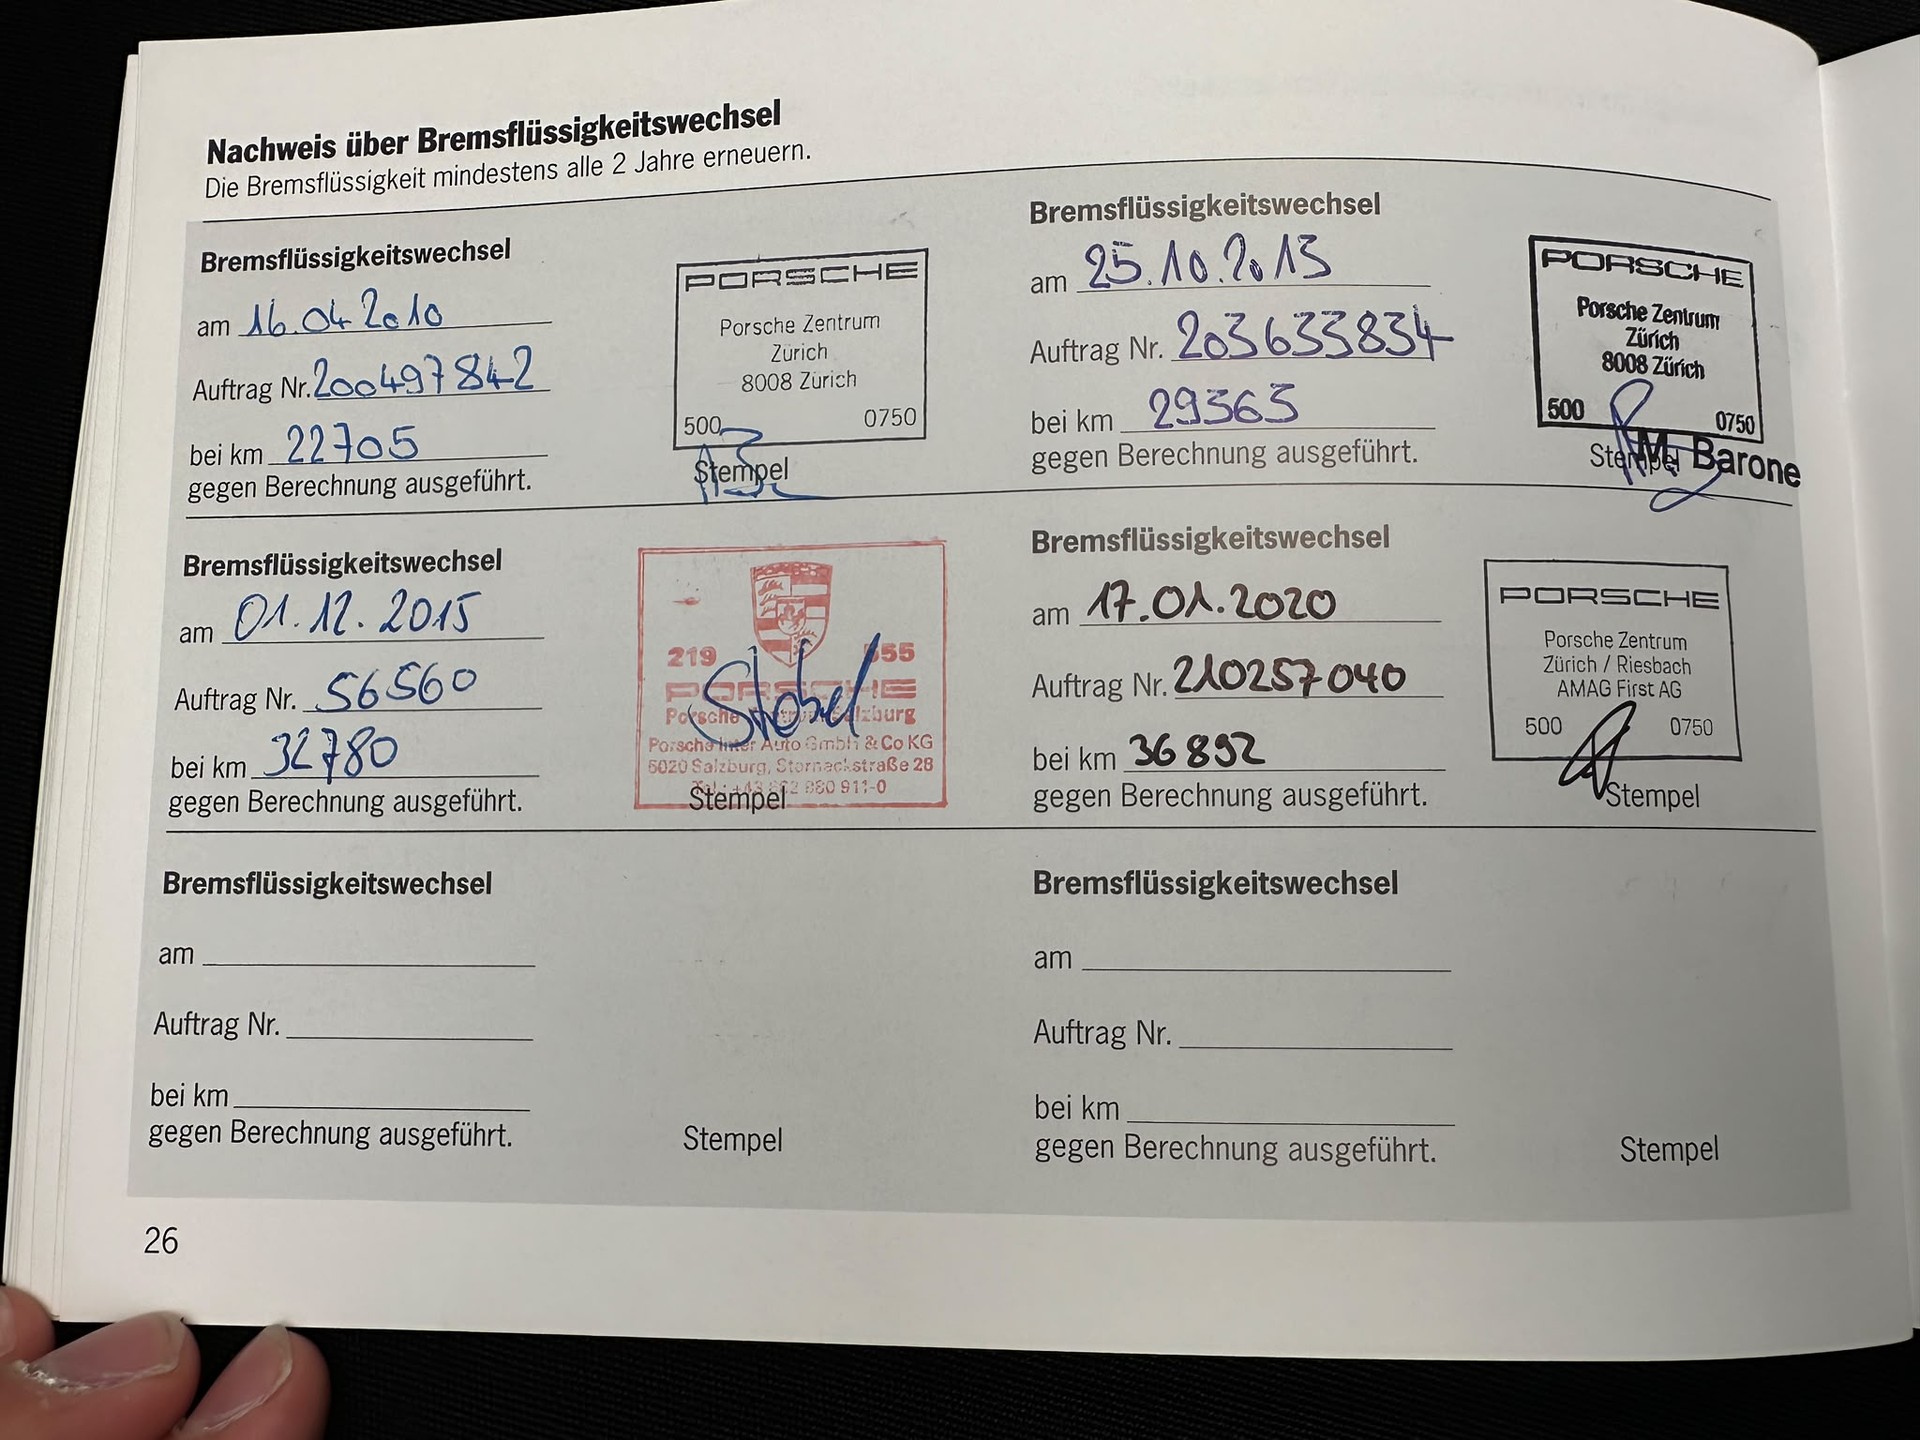 Nachweis über Bremsflüssigkeitswechsel
Die Bremsflüssigkeit mindestens alle 2 Jahre erneuern.
Bremsflüssigkeitswechsel
am 16.04.2010
Auftrag Nr. 200497842
bei km 22705
gegen Berechnung ausgeführt.
PORSCHE
Porsche Zentrum
Zürich
8008 Zürich
500 0750
Stempel
Bremsflüssigkeitswechsel
am 25.10.2013
Auftrag Nr. 203633834
bei km 29363
gegen Berechnung ausgeführt.
PORSCHE
Porsche Zentrum
Zürich
8008 Zürich
500 0750
Stempel M. Barone
Bremsflüssigkeitswechsel
am 01.12.2015
Auftrag Nr. 56560
bei km 32780
gegen Berechnung ausgeführt.
219 555
PORSCHE
Porsche Zentrum Salzburg
Porsche Inter Auto GmbH & Co KG
5020 Salzburg, Sterneckstraße 28
Tel.: +43 662 880 911-0
Stempel
Bremsflüssigkeitswechsel
am 17.01.2020
Auftrag Nr. 210257040
bei km 36892
gegen Berechnung ausgeführt.
PORSCHE
Porsche Zentrum
Zürich / Riesbach
AMAG First AG
500 0750
Stempel
Bremsflüssigkeitswechsel
am
Auftrag Nr.
bei km
gegen Berechnung ausgeführt.
Stempel
Bremsflüssigkeitswechsel
am
Auftrag Nr.
bei km
gegen Berechnung ausgeführt.
Stempel
26